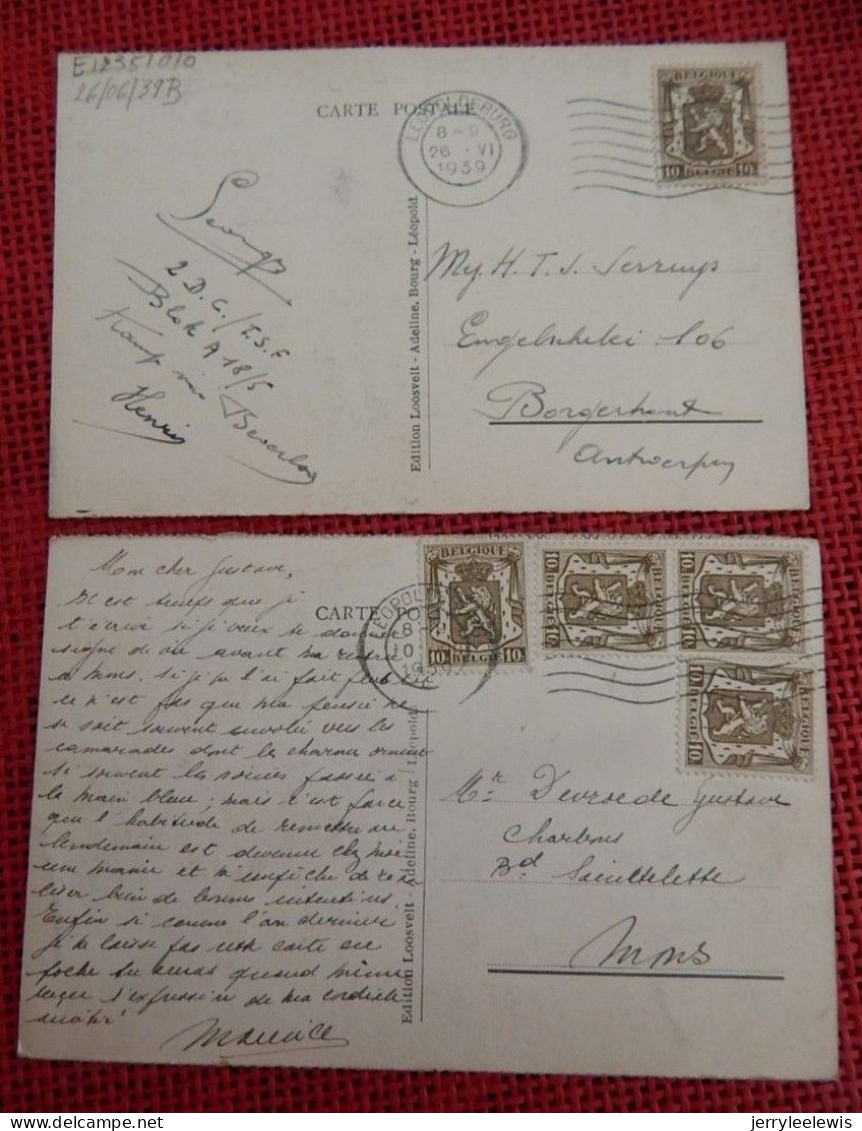 E12351010
26/06/39B
CARTE POSTALE
LEOPOLDSBURG
8-9
26 VI
1939
BELGIQUE
10 BELGIE 10
Georges
2 D.C./T.S.F
Blok A 18/5
Kamp van Beverloo
Henris
Edition Loosvelt - Adeline, Bourg - Léopold.
H. T. J. Serruys
106
Borgerhout
Antwerpen
Mon cher Gustave,
Il est temps que je
t'écrive si je veux te donner
signe de vie avant ma rentrée
à Mons. Si je l'ai fait peu
ce n'est pas que ma pensée ne
se soit souvent envolée vers les
camarades dont le charme
si souvent les soirées passées à
la main bleue; mais c'est parce
que l'habitude de remettre au
lendemain est devenue chez moi
une manie et m'empêche de
bien de bonnes intentions.
Enfin si comme l'an dernier
je te laisse pas une carte en
poche tu auras quand même
l'expression de ma cordiale
amitié
Maurice
CARTE PO
LEOPOL
8-
10
19
BELGIQUE
10 BELGIE 10
BELGIQUE
10 10
BELGIQUE
10 10
10 10
Edition Loosvelt - Adeline, Bourg - Léopold.
Mr. Devroede Gustave
Charbons
Bd Sainctelette
Mons
jerryleelewis